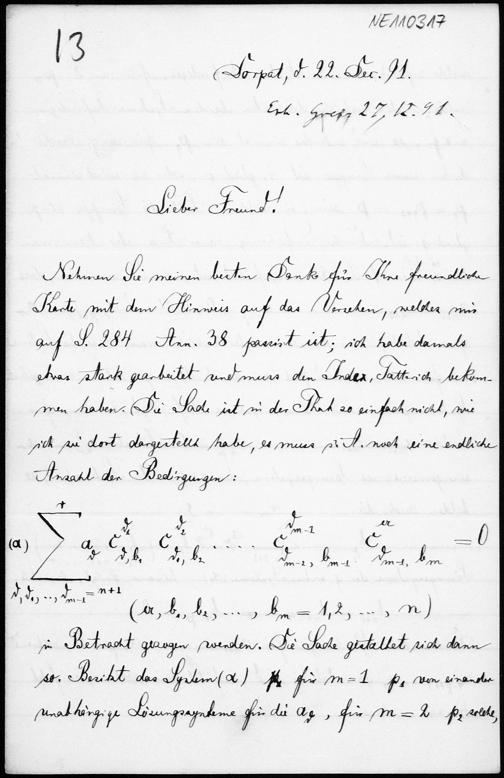 NE110317
13
Dorpat, d. 22. Dec. 91.
Erh. Greiz 27/12.91.
Lieber Freund!
Nehmen Sie meinen besten Dank für Ihre freundliche
Karte mit dem Hinweis auf das Versehen, welches mir
auf S. 284 Ann. 38 passirt ist; ich habe damals
etwas stark gearbeitet und muss den Index, Tatterich bekom-
men haben. Die Sache ist in der That so einfach nicht, wie
ich sie dort dargestellt habe, es muss i. A. noch eine endliche
Anzahl der Bedingungen:
(α) Σ a_d C^{d}_{d, b_1} C^{d_2}_{d_1, b_2} .... C^{d_{m-1}}_{d_{m-2}, b_{m-1}} C^{a}_{d_{m-1}, b_m} = 0
d, d_1, .., d_{m-1} = n+1
(a, b_1, b_2, ..., b_m = 1, 2, ..., n)
in Betracht gezogen werden. Die Sache gestaltet sich dann
so. Besitzt das System (α) für m = 1 p_1 von einander
unabhängige Lösungssysteme für die a_d, für m = 2 p_2 solche,